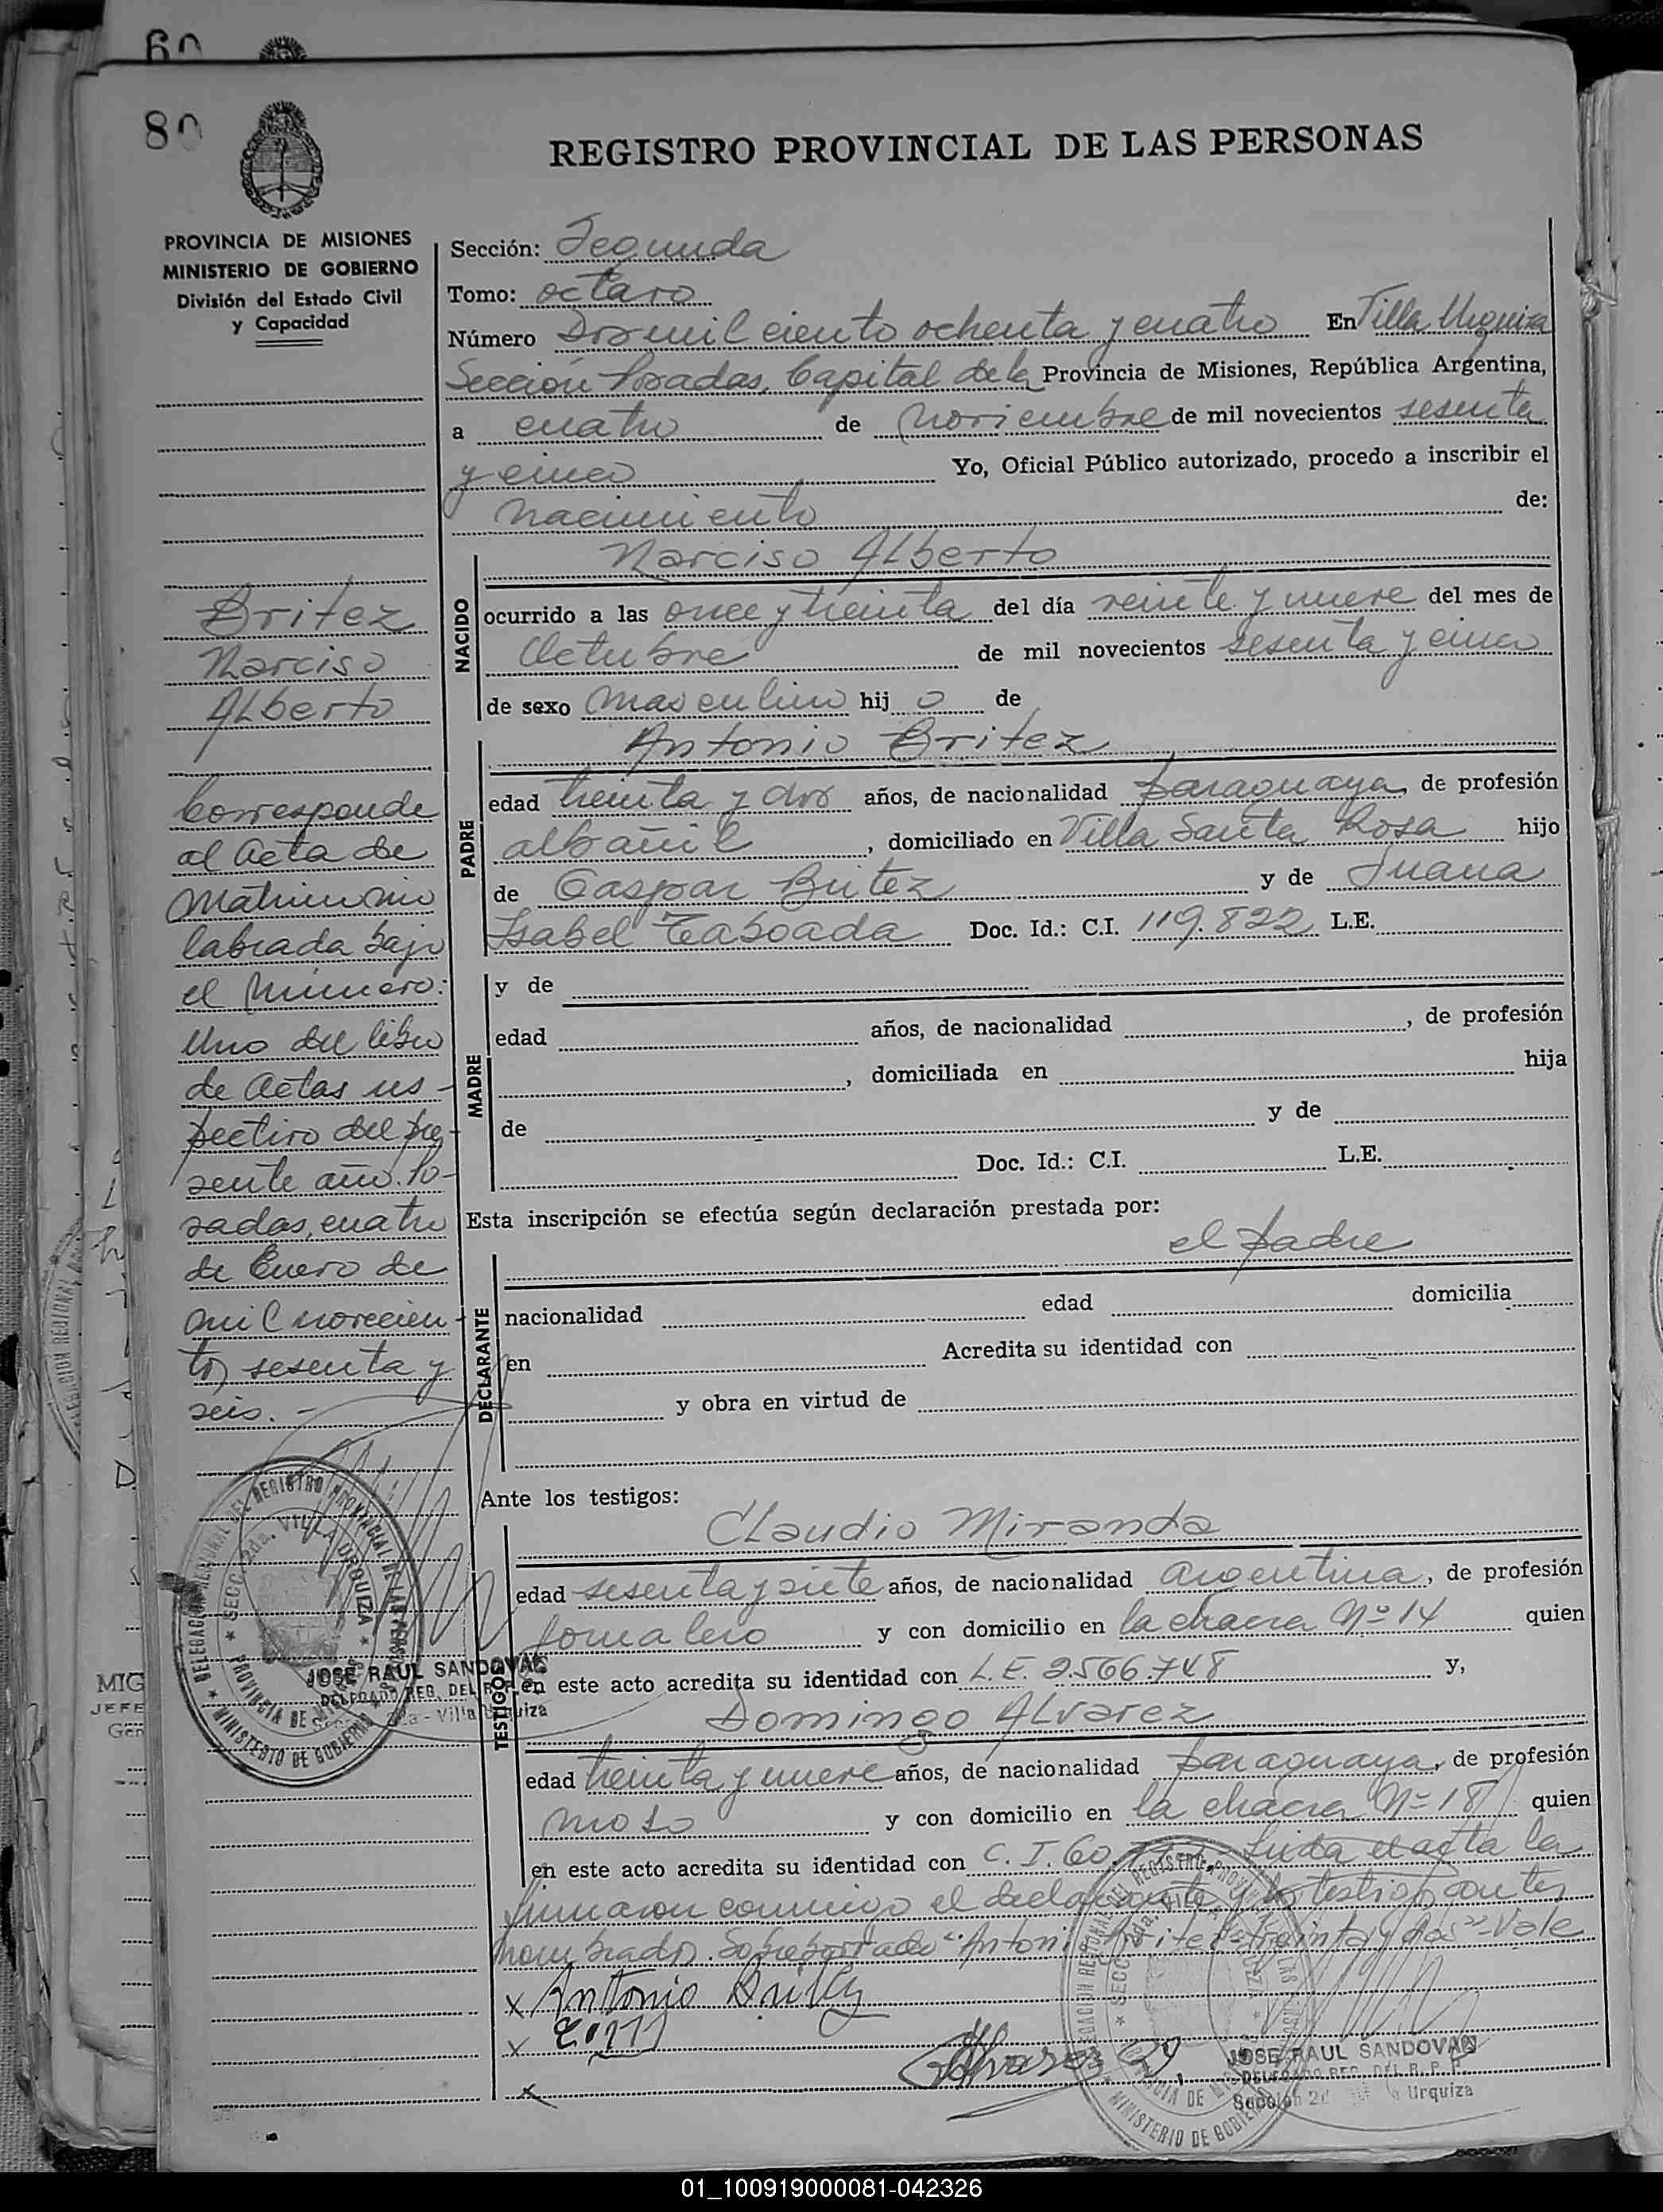 60
80
REGISTRO PROVINCIAL DE LAS PERSONAS
PROVINCIA DE MISIONES
MINISTERIO DE GOBIERNO
División del Estado Civil
y Capacidad
Sección: Segunda
Tomo: octavo
Número Dos mil ciento ochenta y cuatro En Villa Urquiza
Sección Posadas, Capital de la Provincia de Misiones, República Argentina,
a cuatro de Noviembre de mil novecientos sesenta
y cinco Yo, Oficial Público autorizado, procedo a inscribir el
Nacimiento de:
NACIDO
Narciso Alberto
ocurrido a las once y treinta del día veinte y nueve del mes de
Octubre de mil novecientos sesenta y cinco
de sexo masculino hijo de
PADRE
Antonio Britez
edad treinta y dos años, de nacionalidad paraguaya, de profesión
albañil, domiciliado en Villa Santa Rosa hijo
de Gaspar Britez y de Juana
Isabel Taboada Doc. Id.: C.I. 119.822 L.E.
MADRE
y de
edad años, de nacionalidad , de profesión
, domiciliada en hija
de y de
Doc. Id.: C.I. L.E.
Esta inscripción se efectúa según declaración prestada por:
DECLARANTE
el padre
nacionalidad edad domicilia
en Acredita su identidad con
y obra en virtud de
Ante los testigos:
TESTIGOS
Claudio Miranda
edad sesenta y siete años, de nacionalidad argentina, de profesión
Jornalero y con domicilio en la chacra Nº 14 quien
en este acto acredita su identidad con L.E. 2.566.748 y,
Domingo Alvarez
edad treinta y nueve años, de nacionalidad paraguaya, de profesión
moso y con domicilio en la chacra Nº 18 quien
en este acto acredita su identidad con C.I. 60. Leida el acta la
firmaron conmigo el declarante y los testigos antes
nombrados. Sobreborrado "Antonio Britez - treinta y dos" = Vale
x Antonio Britez
x
x
Alvarez
JOSE RAUL SANDOVAL
DELEGADO REG. DEL R. P. P.
Sección 2da Urquiza
Britez
Narciso
Alberto
Corresponde
al Acta de
Matrimonio
labrada bajo
el Número:
Uno del libro
de Actas res-
pectivo del pre-
sente año. Po-
sadas, cuatro
de Enero de
mil novecien-
tos sesenta y
seis. -
DELEGACION REGIONAL DEL REGISTRO PROVINCIAL DE LAS PERSONAS
SECC. 2da. VILLA URQUIZA
PROVINCIA DE MISIONES
MINISTERIO DE GOBIERNO
JOSE RAUL SANDOVAL
DELEGADO REG. DEL R. P. P.
2da - Villa Urquiza
MIG
JEFE
Gen
01_100919000081-042326